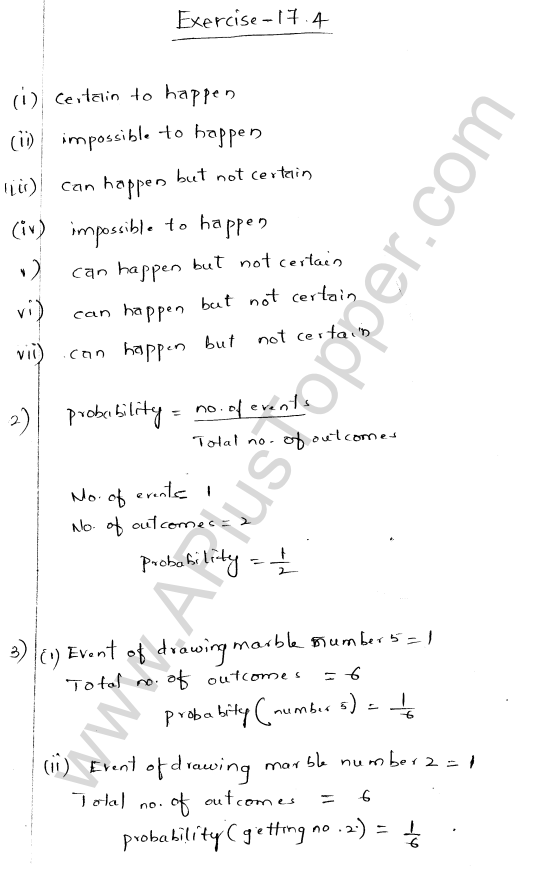 Exercise-17.4
(i) certain to happen
(ii) impossible to happen
(iii) can happen but not certain
(iv) impossible to happen
v) can happen but not certain
vi) can happen but not certain
vii) can happen but not certain
2) probability = no. of events / Total no. of outcomes
No. of events = 1
No. of outcomes = 2
probability = 1/2
3) (i) Event of drawing marble number 5 = 1
Total no. of outcomes = 6
probabity (number 5) = 1/6
(ii) Event of drawing marble number 2 = 1
Total no. of outcomes = 6
probability (getting no. 2) = 1/6
www.APlusTopper.com